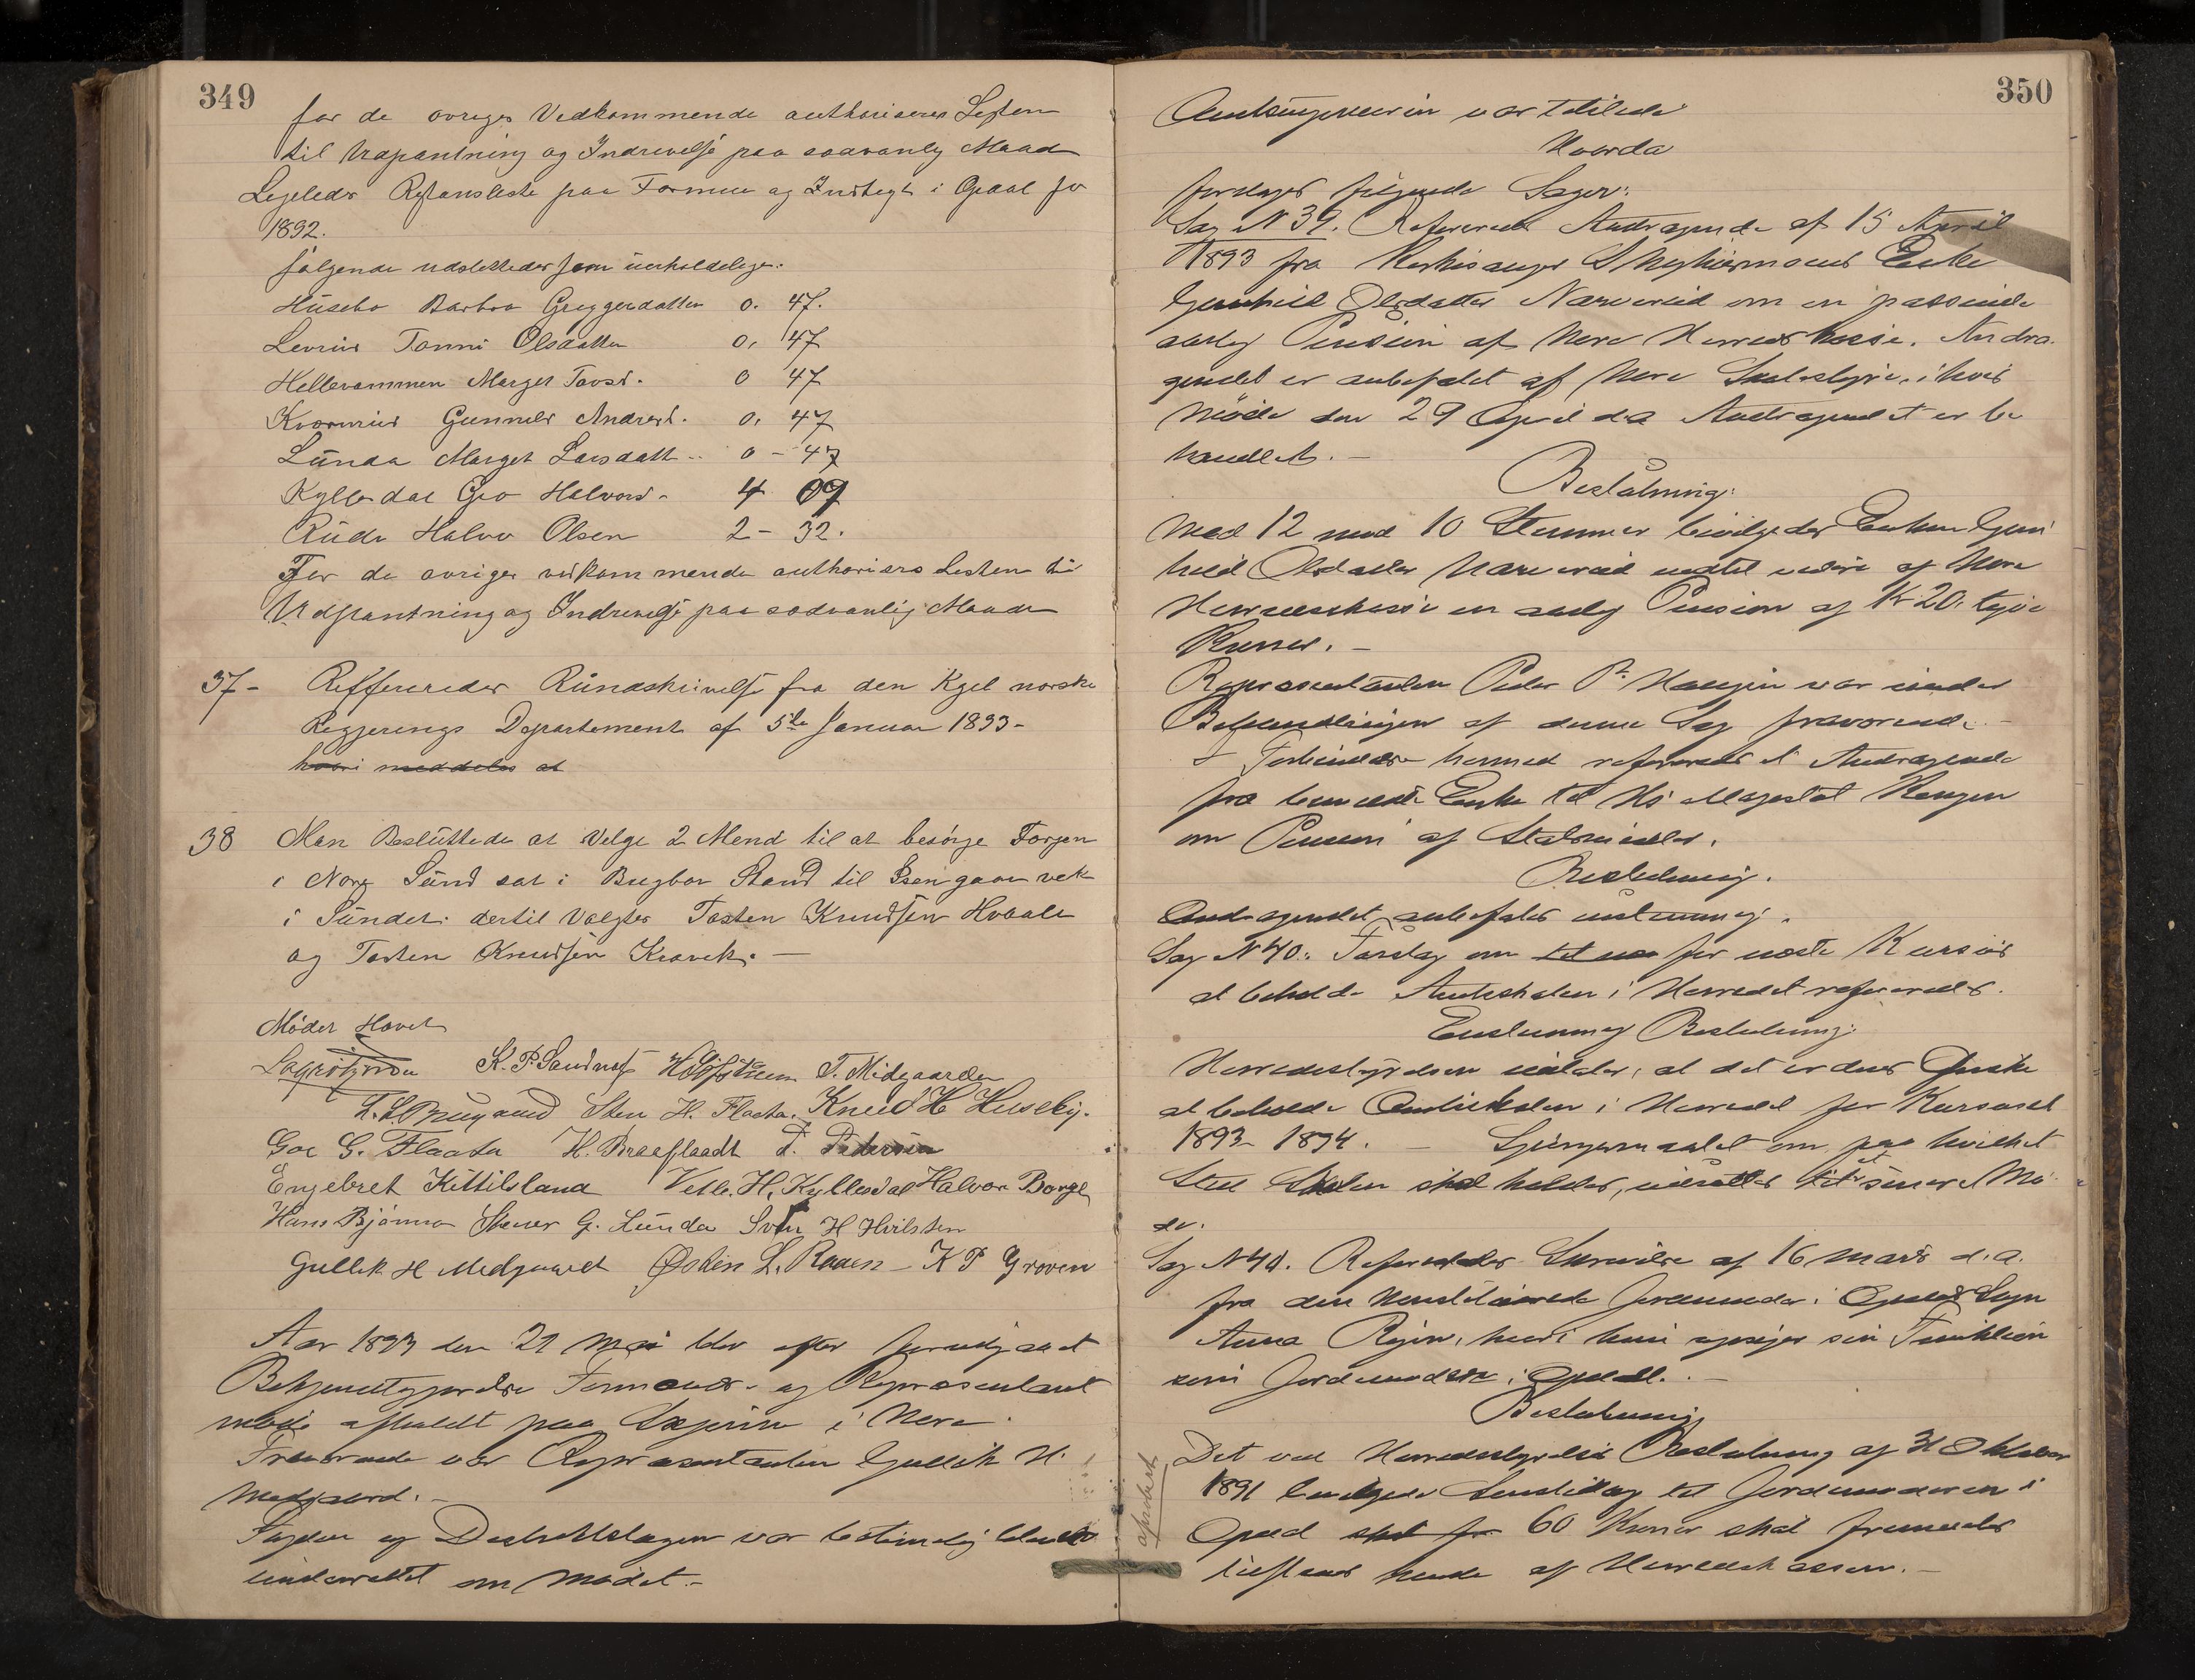 349
for de øvriges Vedkommende authoriseres Listen
til Udpantning og Inddrivelse paa sædvanlig Maade
Ligeledes Restanseliste paa Formue og Indtegt i Opdal for
1892.
følgende udslettedes som uerholdelige:
Huseba Barbra Greggersdatter 0. 47.
Tonni Olsdatter 0, 47
Hellevammen Marget Tovsd. 0 47
Gunnild Andersd. 0, 47
Lunda Marget Larsdatt 0 - 47
Kylledal Gro Halvors. 4 09
Rudi Halvor Olsen 2 - 32.
For de øvriges vedkommende authoriseres Listen til
Udpantning og Inddrivelse paa sædvanlig Maade
37- Refferredes Rundskrivelse fra den Kgel norske
Regjerings Departement af 5te Januar 1893-
hvori meddeles at
38 Man Besluttede at Velge 2 Mend til at besørge Færgen
i Nore Sund sat i Brugbar Stand til Isen gaar vek
i Sundet. dertil Valgtes Tosten Knudsen Hvaale
og Tosten Knudsen Kravik. —
Mødet Hævet
K. P. Sandnes T. Midgaarden
Sten H. Flaata. Knud H Huseby.
Goe G. Flaata H. Braaflaadt T. Pedersen
Engebret Kittilsland Vetle. H. Kylledal Halvor Borge
Hans Bjønna Stener G. Lunda Sven H Hvilsten
Gullik H Medgaard Østen L. Raaen - K P Groven
Aar 1893 den 21 Mai blev efter forudgaaet
Bekjendtgjørelse Formands- og Repræsentant
møde afholdt paa Skjønne i Nore.
Fraværende var Repræsentanten Gullik H.
Medgaard. —
Fogden og Distriktslægen var betimelig blevet
underrettet om Mødet. -
350
Amtsingeniøren var tilstede
Hvorda
foretoges følgende Sager:
Sag N 39. Refereret Andragende af 15 April
1893 fra Kirkesanger Enke
Gunhild Olsdatter Nærverud om en passende
aarlig Pension af Nore Herredskasse. Andra-
gendet er anbefalet af Nore Skolestyre, i hvis
Møde den 29 April d.a Andragendet er be
handlet. —
Beslutning:
Med 12 mod 10 Stemmer bevilgedes Enken Gun
hild Olsdatter Nærverud indtil videre af Nore
Herredskasse en aarlig Pension af Kr 20. tyve
Kroner. —
Repræsentanten Peder P. Haugen var under
Behandlingen af denne Sag fraværende. —
I Forbindelse hermed refereredes et Andragende
fra benævnte Enke til Hs Majestæt Kongen
om Pension af Statsmidler.
Beslutning.
Andragendet anbefales enstemmig.
Sag N 40. Forslag om for næste Kursus
at beholde Amtsskolen i Herredet refereredes.
Enstemmig Beslutning:
Herredsstyrelsen udtaler, at det er deres Ønske
at beholde Amtsskolen i Herredet for Kursaaret
1893-1894. — Spørgsmaalet om paa hvilket
Sted Skolen skal holdes, udsættes til et senere Mø-
de.
Sag N 41. Refereredes Skrivelse af 16 Marts d.a.
fra den konstituerede Jordemoder i Opdal Sogn
Anna hvori hun opsiger sin Funktion
som Jordemoder i Opdal. —
Beslutning
opskrevet
Det ved Herredsstyrelsens Beslutning af 31 Oktober
1891 bevilgede Lønstillæg til Jordemoderen i
Opdal skal for 60 Kroner skal fremdeles
tilstaaes hende af Herredskassen. —